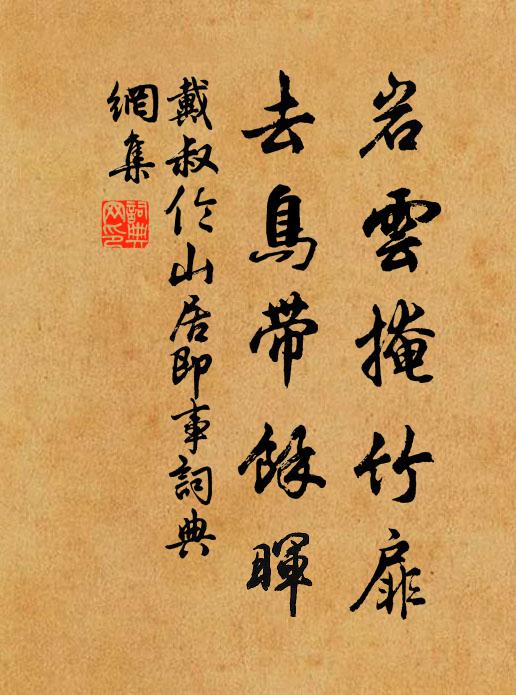 岩雲掩竹扉
去鳥帶餘暉
戴叔伦山居即事詞典
網集
詞典網印